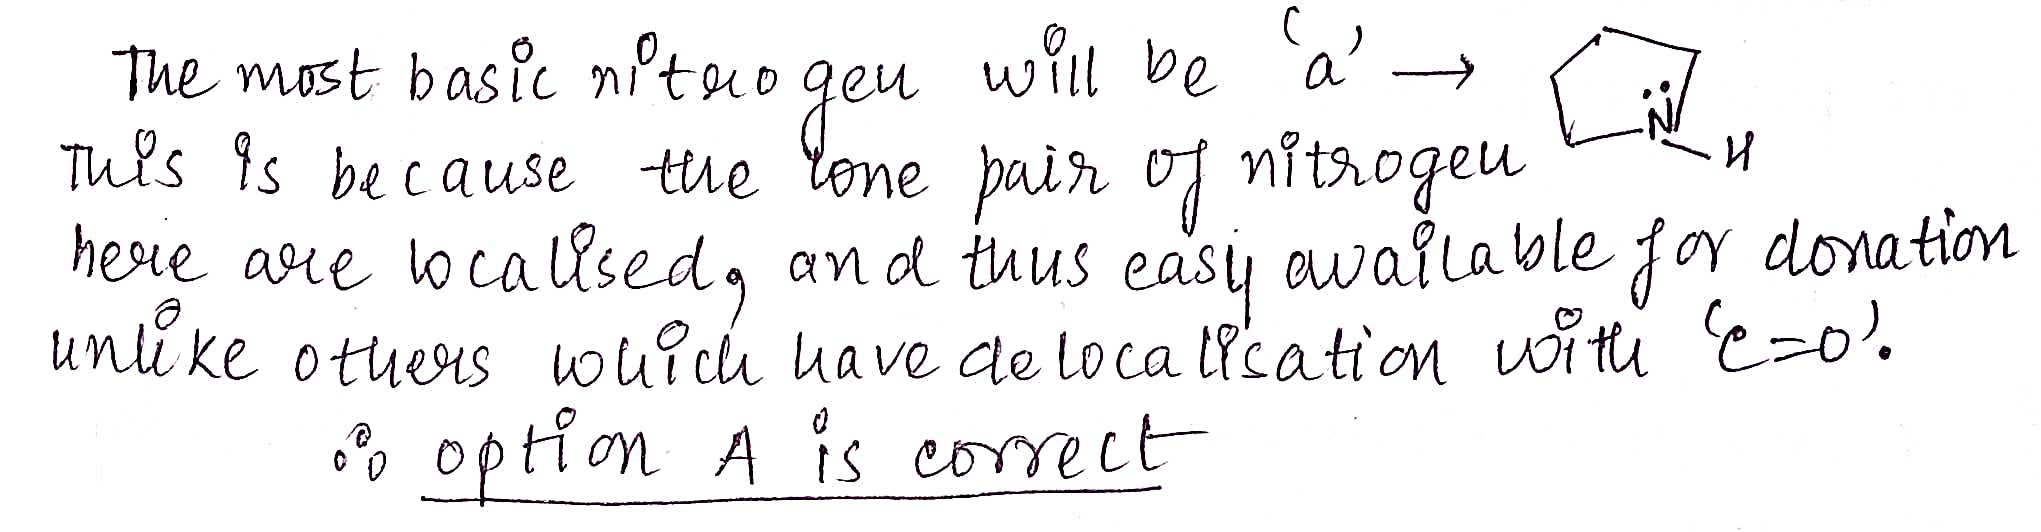 The most basic nitrogen will be 'a' →
N
H
This is because the lone pair of nitrogen
here are localised, and thus easy available for donation
unlike others which have delocalisation with 'c=o'.
∴ option A is correct